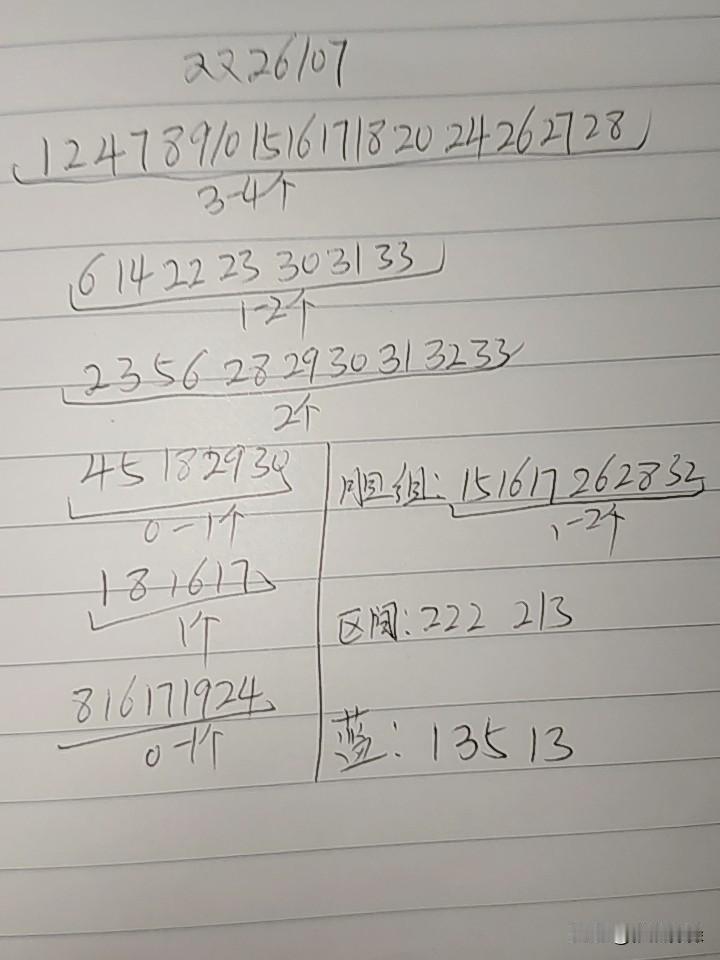 2226107
1 2 4 7 8 9 10 15 16 17 18 20 24 26 27 28
3-4个
6 14 22 23 30 31 33
1-2个
2 3 5 6 28 29 30 31 32 33
2个
4 5 18 29 30
0-1个
1 8 16 17
1个
8 16 17 19 24
0-1个
胆组: 15 16 17 26 28 32
1-2个
区间: 222 213
蓝: 1 3 5 13